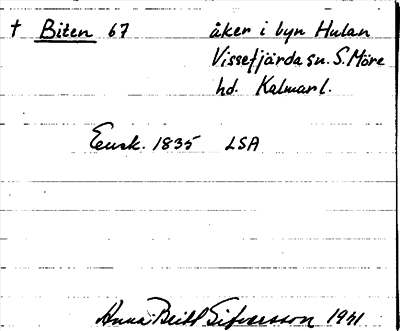 † Biten 67 åker i byn Hulan
Vissefjärda sn. S. Möre
hd. Kalmar l.
Ensk. 1835 LSA
Anna Britt Sifvarsson 1941